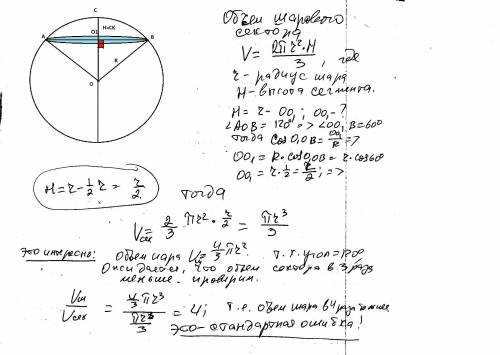 C
O1
H=CK
A
B
R
O
Объем шарового
сектора
V = 2πr²·H / 3, где
r - радиус шара
H - высота сегмента.
H = r - OO₁; OO₁ - ?
∠AOB = 120° => ∠OO₁B = 60°
тогда cos O₁OB = OO₁/R =>
OO₁ = R·cos O₁OB = r·cos60
OO₁ = r·1/2 = r/2; =>
H = r - 1/2 r = r/2
тогда
Vсек = 2/3 πr²·r/2 = πr³/3
Это интересно! Объем шара Vш = 4/3 πr³. Т.к. угол = 120°
Ожидалось, что объем сектора в 3 раза
меньше. Проверим.
Vш/Vсек = (4/3 πr³)/(πr³/3) = 4; т.е. объем шара в 4 раза больше
Это - стандартная ошибка!